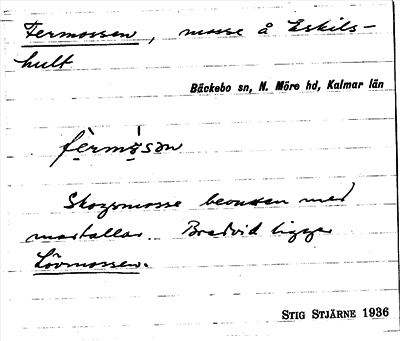 Fermossen, mosse å Eskils-
hult
Bäckebo sn, N. Möre hd, Kalmar län
fèrmå̀sən
Skogsmosse bevuxen med
martallar. Bredvid ligger
Lövmossen.
STIG STJÄRNE 1936